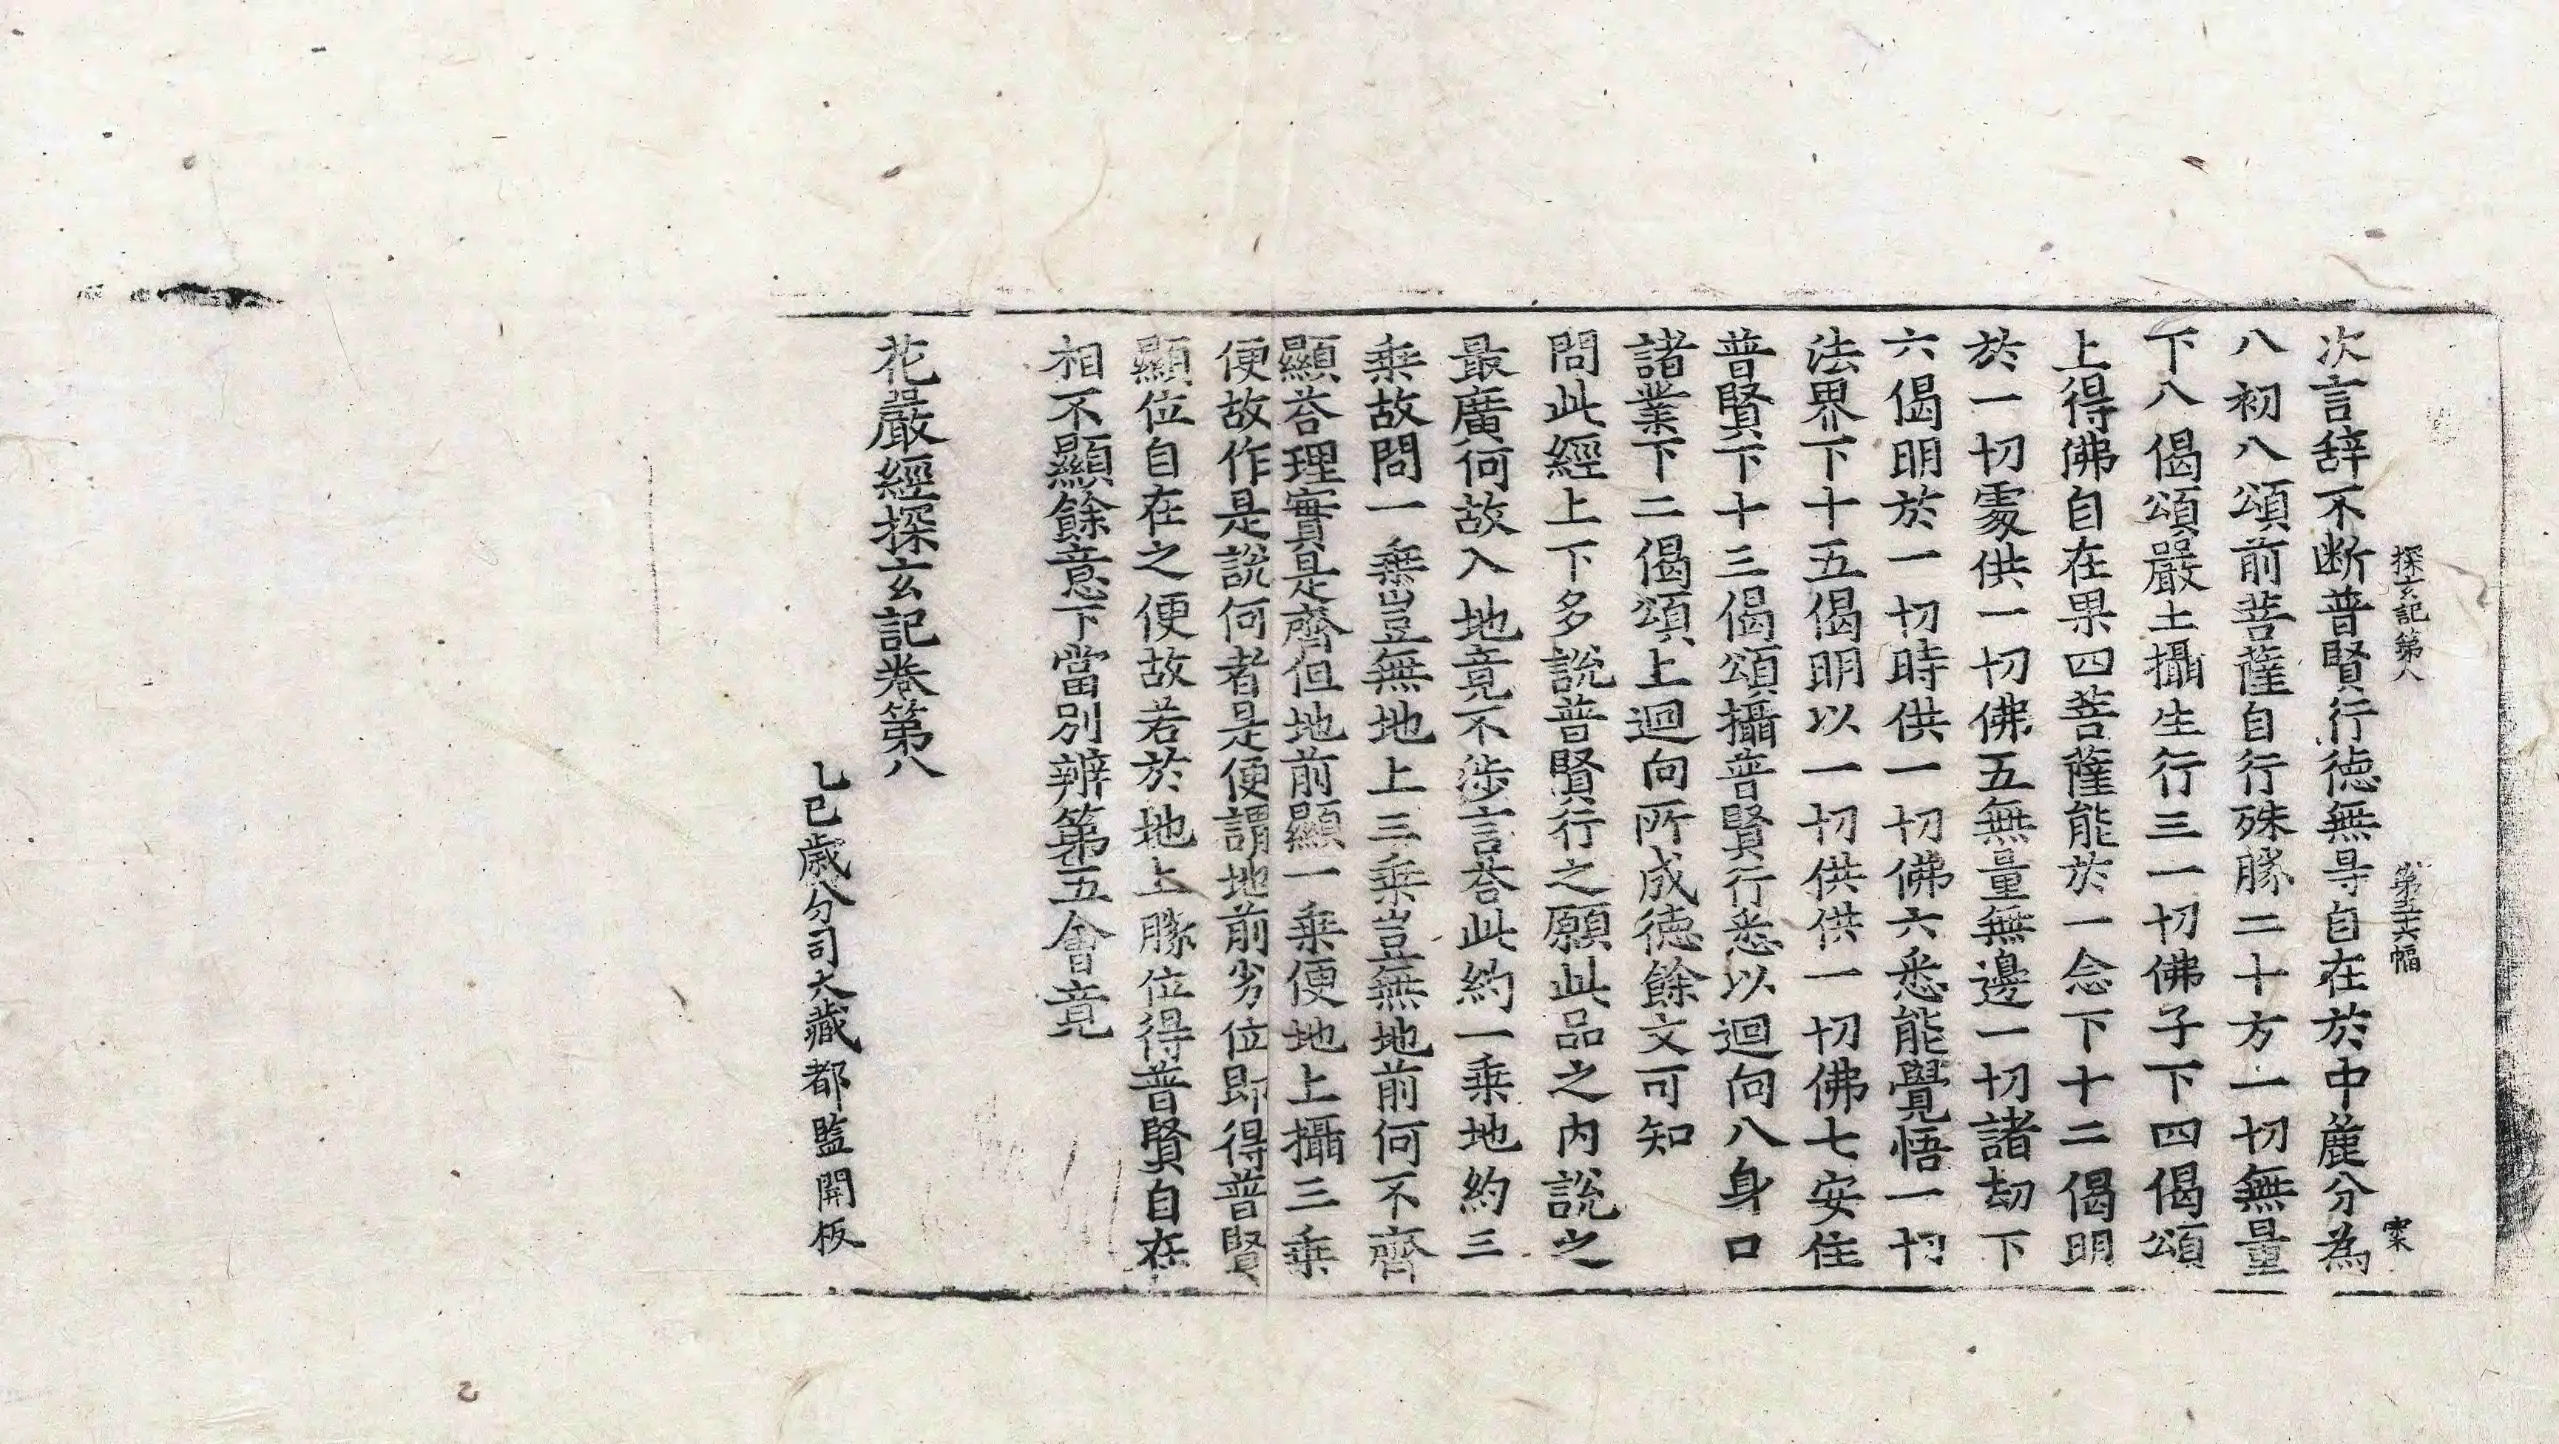 探玄記第八 第五十六幅 案
次言辞不断普賢行徳無㝵自在於中麄分為
八初八頌前菩薩自行殊勝二十方一切無量
下八偈頌嚴土攝生行三一切佛子下四偈頌
上得佛自在果四菩薩能於一念下十二偈明
於一切處供一切佛五無量無邊一切諸劫下
六偈明於一切時供一切佛六悉能覺悟一切
法界下十五偈明以一切供供一切佛七安住
普賢下十三偈頌攝普賢行悉以迴向八身口
諸業下二偈頌上迴向所成徳餘文可知
問此經上下多說普賢行之願此品之内說之
最廣何故入地竟不涉言荅此約一乗地約三
乗故問一乗豈無地上三乗豈無地前何不齊
顯荅理實是齊但地前顯一乗便地上攝三乗
便故作是說何者是便謂地前劣位即得普賢
顯位自在之便故若於地上勝位得普賢自在
相不顯餘意下當別辨第五會竟
花嚴經探玄記卷第八
乙巳歲分司大藏都監開板